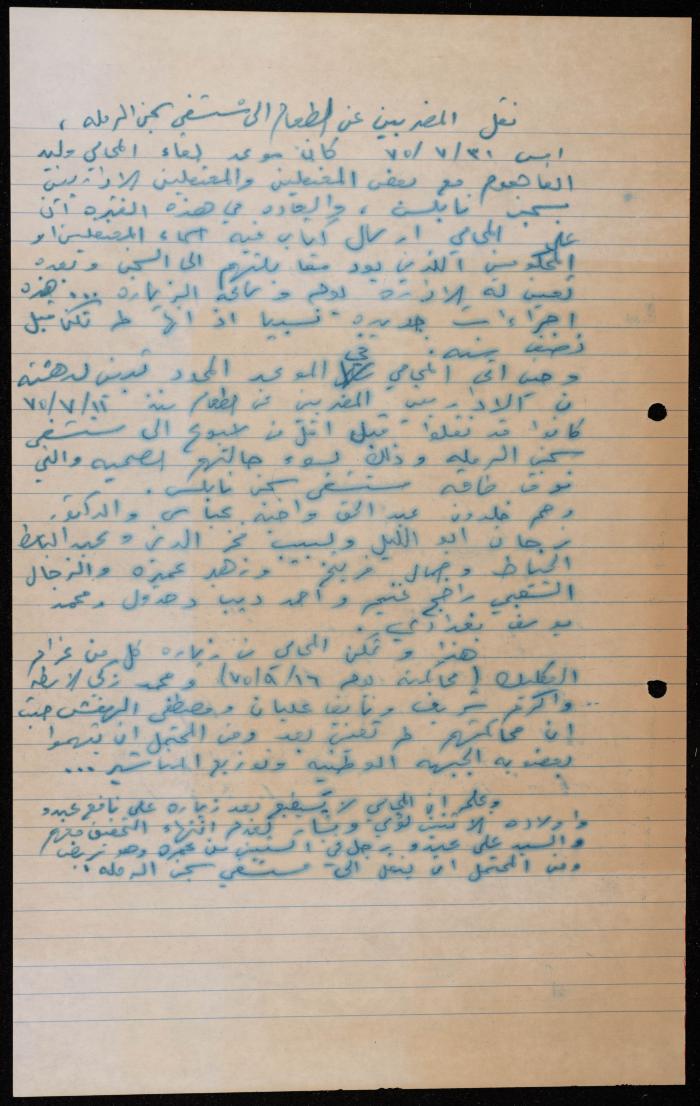 نقل المضربين عن الطعام الى مستشفى سجن الرمله ،
امس ٣١ / ٧ / ٧٥ كان موعد لقاء المحامي وليد
الفاهوم مع بعض المعتقلين والمعتقلين الاداريين
بسجن نابلس ، والعاده في هذه الفتره ان
على المحامي ارسال كتاب فيه اسماء المعتقلين او
المحكومين الذين يود مقابلتهم الى السجن وبعده
تعين له الاداره يوم وساعة الزياره ... هذه
اجراءات جديده نسبيا اذ انها لم تكن قبل
نصف سنه .
وحين اتى المحامي في الموعد المحدد تبين لدهشته
ان الاداريين المضربين عن الطعام منذ ١٢/٧/٧٥
كانوا قد نقلوا قبل اقل من اسبوع الى مستشفى
سجن الرمله وذلك لسوء حالتهم الصحيه والتي
فوق طاقة مستشفى سجن نابلس .
وهم خلدون عبد الحق واحمد عباس والدكتور
فرحان ابو الليل ولبيب فخر الدين وعبد الباسط
الخياط وجمال فريتخ وزهد عميره والزجال
الشعبي راجح غنيم واحمد ديب دحدول ومحمد
يوسف بغدادي .
هذا وتمكن المحامي من زياره كل من عزام
(محاكمته يوم ١٦/٩/٧٥) ومحمد زكي الاسطه
واكرم شريف ونايف عليان ومصطفى الهفش حيث
ان محاكمتهم لم تعين بعد ومن المحتمل ان يتهموا
بعضويه الجبهه الوطنيه وتوزيع المناشير ...
وعلم ان المحامي لا يستطيع بعد زياره علي نافع عبدو
واولاده الاثنين لؤي وبسام لعدم انتهاء التحقيق معهم
والسيد علي عبدو رجل في الستين من عمره وهو مريض
ومن المحتمل ان ينقل الى مستشفى سجن الرمله .